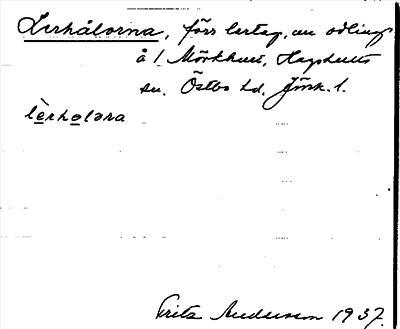 Lerhålorna, förr lertag, nu odling
å 1 Mörkhult, Hagshults
sn. Östbo hd. Jönk. l.
lèrholəra
Frits Andersson 1937.